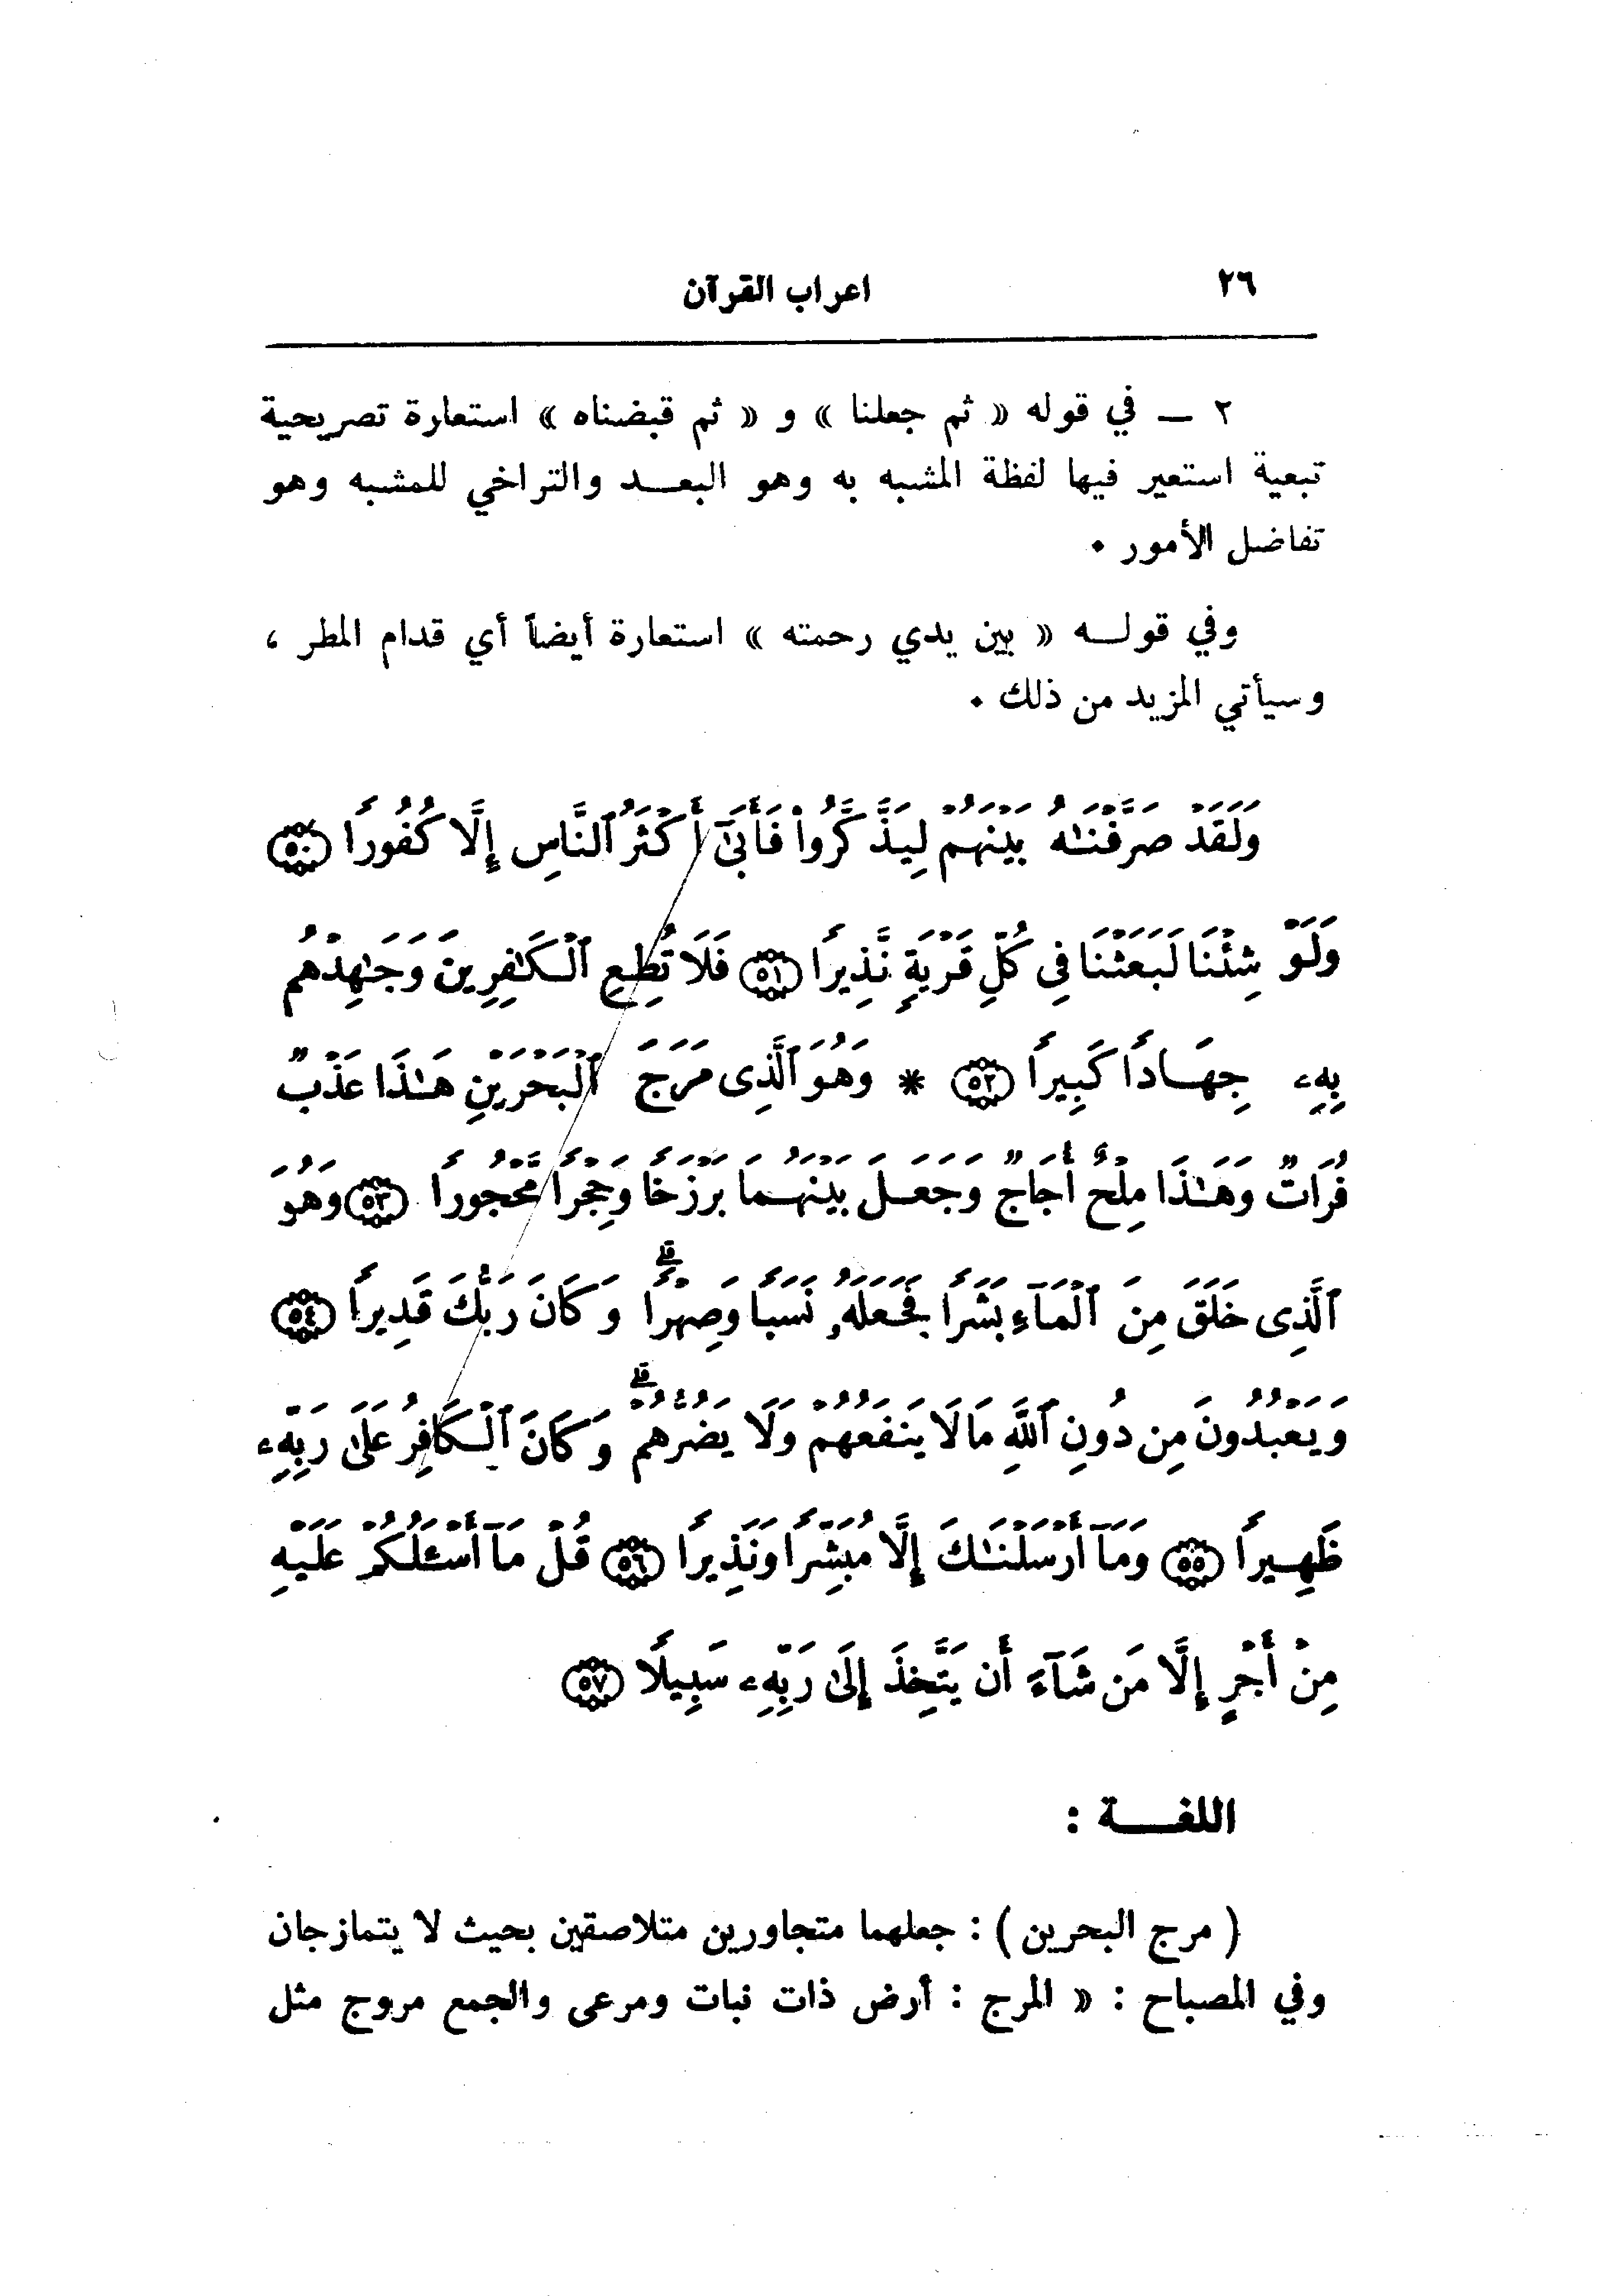 ٢٦ اعراب القرآن
٢ ــ في قوله « ثم جعلنا » و « ثم قبضناه » استعارة تصريحية
تبعية استعير فيها لفظة المشبه به وهو البعــد والتراخي للمشبه وهو
تفاضل الأمور ٠
وفي قولــه « بين يدي رحمته » استعارة أيضاً أي قدام المطر ،
وسيأتي المزيد من ذلك ٠
وَلَقَدْ صَرَّفْنَٰهُ بَيْنَهُمْ لِيَذَّكَّرُواْ فَأَبَىٰٓ أَكْثَرُ ٱلنَّاسِ إِلَّا كُفُورًا ﴿٥٠﴾
وَلَوْ شِئْنَا لَبَعَثْنَا فِى كُلِّ قَرْيَةٍ نَّذِيرًا ﴿٥١﴾ فَلَا تُطِعِ ٱلْكَٰفِرِينَ وَجَٰهِدْهُم
بِهِۦ جِهَادًا كَبِيرًا ﴿٥٢﴾ * وَهُوَ ٱلَّذِى مَرَجَ ٱلْبَحْرَيْنِ هَٰذَا عَذْبٌ
فُرَاتٌ وَهَٰذَا مِلْحٌ أُجَاجٌ وَجَعَلَ بَيْنَهُمَا بَرْزَخًا وَحِجْرًا مَّحْجُورًا ﴿٥٣﴾ وَهُوَ
ٱلَّذِى خَلَقَ مِنَ ٱلْمَآءِ بَشَرًا فَجَعَلَهُۥ نَسَبًا وَصِهْرًاۗ وَكَانَ رَبُّكَ قَدِيرًا ﴿٥٤﴾
وَيَعْبُدُونَ مِن دُونِ ٱللَّهِ مَا لَا يَنفَعُهُمْ وَلَا يَضُرُّهُمْۗ وَكَانَ ٱلْكَافِرُ عَلَىٰ رَبِّهِۦ
ظَهِيرًا ﴿٥٥﴾ وَمَآ أَرْسَلْنَٰكَ إِلَّا مُبَشِّرًا وَنَذِيرًا ﴿٥٦﴾ قُلْ مَآ أَسْـَٔلُكُمْ عَلَيْهِ
مِنْ أَجْرٍ إِلَّا مَن شَآءَ أَن يَتَّخِذَ إِلَىٰ رَبِّهِۦ سَبِيلًا ﴿٥٧﴾
اللغــــة :
( مرج البحرين ) : جعلهما متجاورين متلاصقين بحيث لا يتمازجان
وفي المصباح : « المرج : أرض ذات نبات ومرعى والجمع مروج مثل